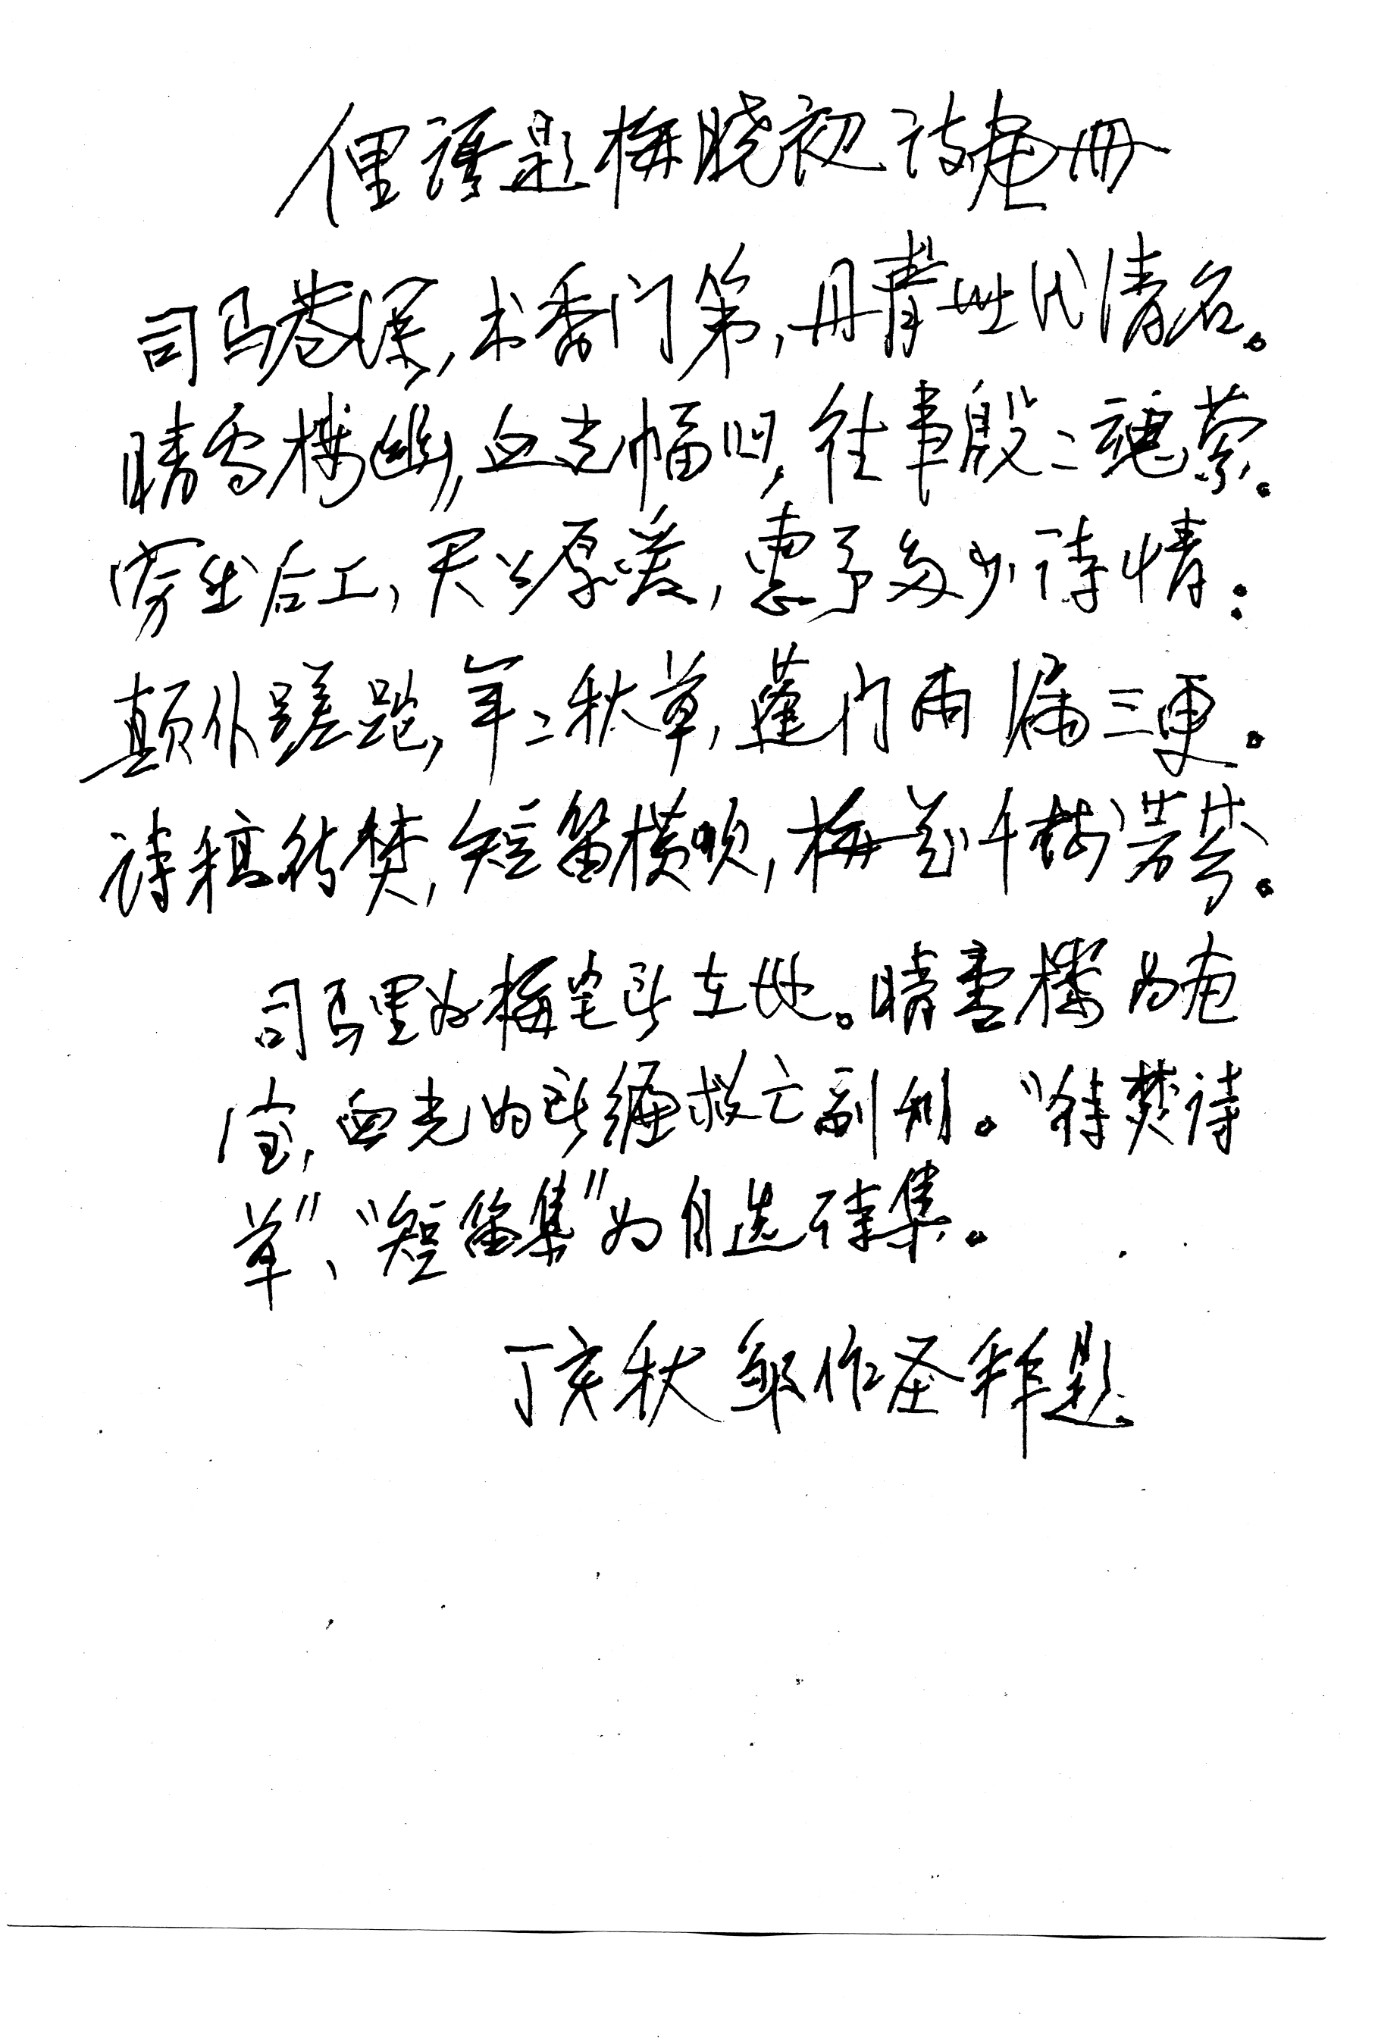 俚语题梅晓初诗画册
司马巷深,书香门第,丹青世代清名。
晴雪楼幽,血光幅旧,往事殷二魂萦。
穷出后工,天公厚爱,惠予多少诗情:
颠仆蹉跎,年二秋草,蓬门雨漏三更。
诗稿待焚,短笛横吹,梅花千树芳芬。
司马里为梅宅所在地。晴雪楼为画
室,血光为所编救亡副刊。“待焚诗
草”、“短笛集”为自选诗集。
丁亥秋 邹作圣拜题